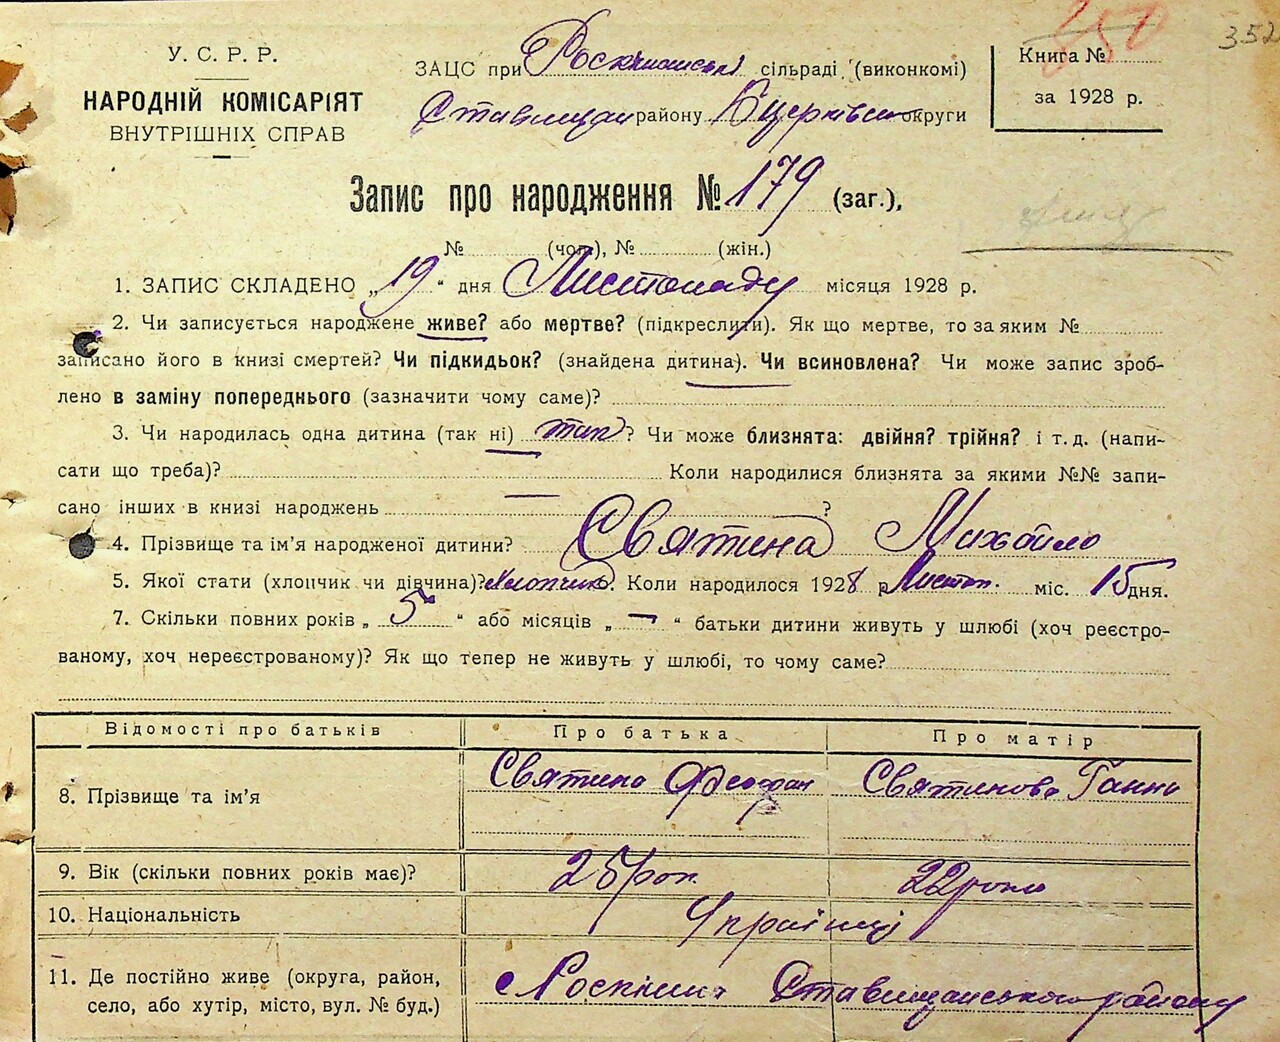 352
У. С. Р. Р.
НАРОДНІЙ КОМІСАРІЯТ
ВНУТРІШНІХ СПРАВ
ЗАЦС при Роскішанській сільраді (виконкомі)
Ставищан району Б церківськ округи
Книга №
за 1928 р.
Запис про народження № 179 (заг.),
№ (чол), № (жін.)
1. ЗАПИС СКЛАДЕНО „19" дня Листопаду місяця 1928 р.
2. Чи записується народжене живе? або мертве? (підкреслити). Як що мертве, то за яким №
записано його в книзі смертей? Чи підкидьок? (знайдена дитина). Чи всиновлена? Чи може запис зроб-
лено в заміну попереднього (зазначити чому саме)?
3. Чи народилась одна дитина (так ні) так? Чи може близнята: двійня? трійня? і т. д. (напи-
сати що треба)? Коли народилися близнята за якими №№ запи-
сано інших в книзі народжень ?
4. Прізвище та ім'я народженої дитини? Святина Михайло
5. Якої стати (хлопчик чи дівчина)? Хлопчик. Коли народилося 1928 р Листоп. міс. 15 дня.
7. Скільки повних років „ 5 " або місяців „ — " батьки дитини живуть у шлюбі (хоч реєстро-
ваному, хоч нереєстрованому)? Як що тепер не живуть у шлюбі, то чому саме?
Відомості про батьків Про батька Про матір
8. Прізвище та ім'я Святина Феофан Святинова Ганна
9. Вік (скільки повних років має)? 25 рок. 22 роки
10. Національність Українці
11. Де постійно живе (округа, район,
село, або хутір, місто, вул. № буд.)
с Роскішна Ставищанського району